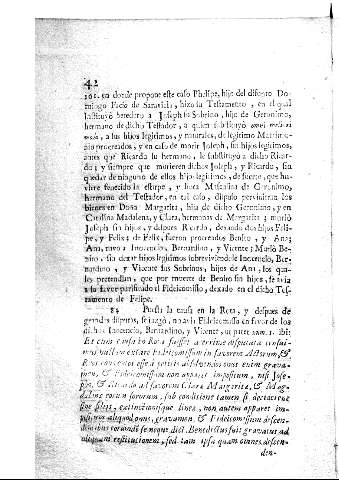 42
101. en donde propone este caso Phelipe, hijo del difunto Do-
mingo Facio de Saravia, hizo su Testamento, en el qual
instituyò heredero à Joseph su Sobrino, hijo de Geronimo,
hermano de dicho Testador, à quien substituyò omni meliori
modo, à sus hijos legitimos, y naturales, de legitimo Matrimo-
nio procreados, y en caso de morir Joseph, sin hijos legitimos,
antes que Ricardo su hermano, le substituyò à dicho Ricar-
do; y siempre que muriere dichos Joseph, y Ricardo, sin
quedar de ninguno de ellos hijos legitimos, de suerte, que hu-
viere fenecido la estirpe, y linea Masculina de Geronimo,
hermano del Testador, en tal caso, dispuso perviniera los
bienes en Doña Margarita, hija de dicho Geronimo, y en
Catalina Madalena, y Clara, hermanas de Margarita; muriò
Joseph sin hijos, y despues Ricardo, dexando dos hijos Feli-
pe, y Felix; de Felix, fueron procreados Benito, y Ana;
Ana, tuvo à Inocencio, Bernardino, y Vicente; Muriò Be-
nito, sin dexar hijos legitimos sobreviviendole Inocencio, Ber-
nardino, y Vicente sus Sobrinos, hijos de Ana, los qua-
les pretendian, que por muerte de Benito sin hijos, se avia
à su favor purificado el Fideicomisso, dexado en el dicho Tes-
tamento de Felipe.
84 Puesta la causa en la Rota, y despues de
grandes disputas, se juzgò, no avia Fideicomisso en favor de los
dichos Inocencio, Bernardino, y Vicente, ut patet num. 1. ibi:
Et cum causa in Rota fuisset acerrime disputata conclui-
mus nullum extare Fideicommissum in favorem Actorum, &
Reos conventos esse à petitis absolvendos cum enim grava-
men, & Fideicommissum non appareat impositum, nisi Jose-
pho, & Ricardo ad favorem Clarae Margaritae, & Mag-
dalenae eorum sororum, sub conditione tamen si decesserent
sine filiis, extinctaque linea, non autem apparet im-
positum aliquod onus, gravamen, & Fideicommissum descen-
dentibus eorundem neque dict. Benedictus fuit gravatus ad
aliquam restitutionem, sed tam ipse quam omnes descen-
den-